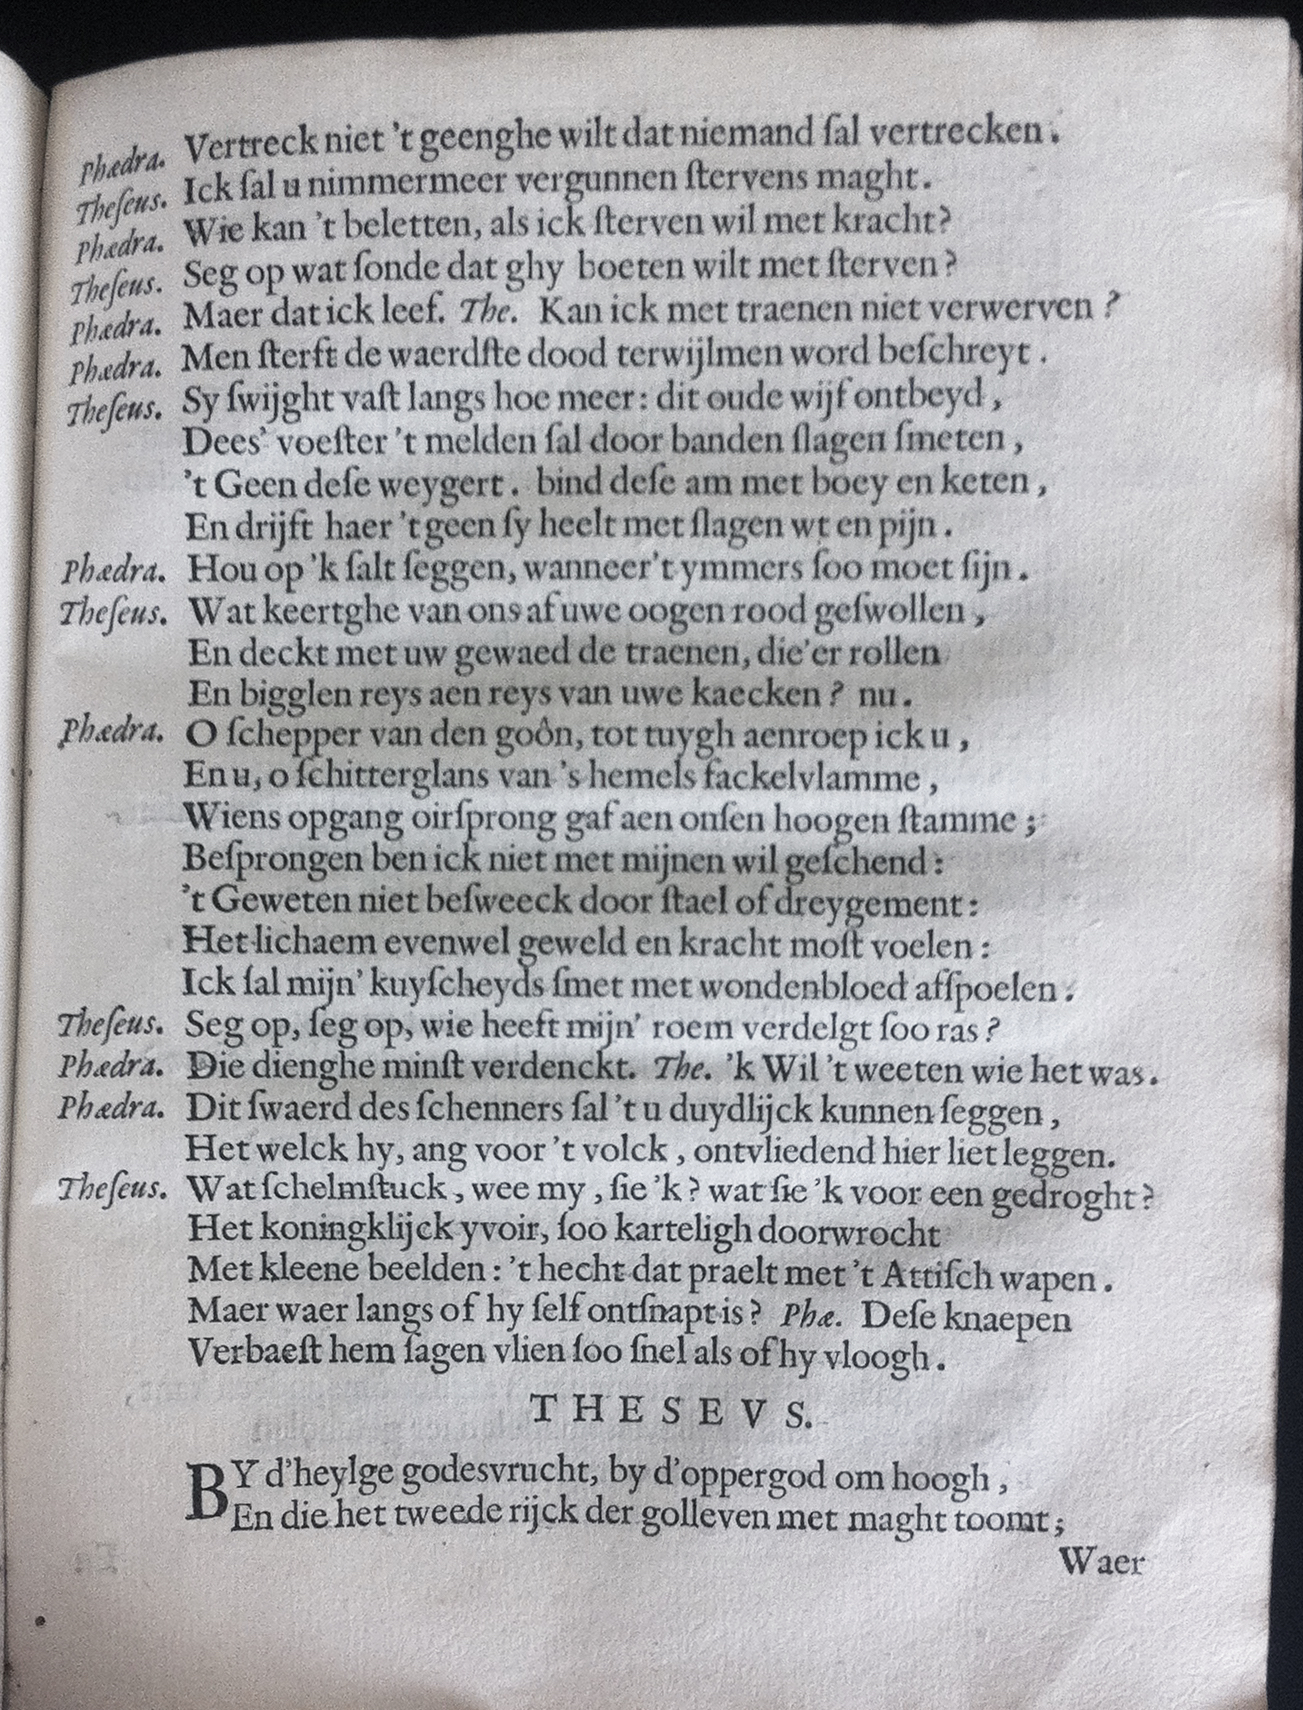 Phædra. Vertreck niet 't geenghe wilt dat niemand ſal vertrecken.
Theſeus. Ick ſal u nimmermeer vergunnen ſtervens maght.
Phædra. Wie kan 't beletten, als ick ſterven wil met kracht?
Theſeus. Seg op wat ſonde dat ghy boeten wilt met ſterven?
Phædra. Maer dat ick leef. The. Kan ick met traenen niet verwerven?
Phædra. Men ſterft de waerdſte dood terwijlmen word beſchreyt.
Theſeus. Sy ſwijght vaſt langs hoe meer: dit oude wijf ontbeyd,
Dees' voeſter 't melden ſal door banden ſlagen ſmeten,
't Geen deſe weygert. bind deſe am met boey en keten,
En drijft haer 't geen ſy heelt met ſlagen wt en pijn.
Phædra. Hou op 'k ſalt ſeggen, wanneer't ymmers ſoo moet ſijn.
Theſeus. Wat keertghe van ons af uwe oogen rood geſwollen,
En deckt met uw gewaed de traenen, die'er rollen
En bigglen reys aen reys van uwe kaecken? nu.
Phædra. O ſchepper van den goôn, tot tuygh aenroep ick u,
En u, o ſchitterglans van 's hemels fackelvlamme,
Wiens opgang oirſprong gaf aen onſen hoogen ſtamme;
Beſprongen ben ick niet met mijnen wil geſchend:
't Geweten niet beſweeck door ſtael of dreygement:
Het lichaem evenwel geweld en kracht moſt voelen:
Ick ſal mijn' kuyſcheyds ſmet met wondenbloed affpoelen.
Theſeus. Seg op, ſeg op, wie heeft mijn' roem verdelgt ſoo ras?
Phædra. Die dienghe minſt verdenckt. The. 'k Wil 't weeten wie het was.
Phædra. Dit ſwaerd des ſchenners ſal 't u duydlijck kunnen ſeggen,
Het welck hy, ang voor 't volck, ontvliedend hier liet leggen.
Theſeus. Wat ſchelmſtuck, wee my, ſie 'k? wat ſie 'k voor een gedroght?
Het koningklijck yvoir, ſoo karteligh doorwrocht
Met kleene beelden: 't hecht dat praelt met 't Attiſch wapen.
Maer waer langs of hy ſelf ontſnapt is? Phæ. Deſe knaepen
Verbaeſt hem ſagen vlien ſoo ſnel als of hy vloogh.
THESEVS.
BY d'heylge godesvrucht, by d'oppergod om hoogh,
En die het tweede rijck der golleven met maght toomt;
Waer